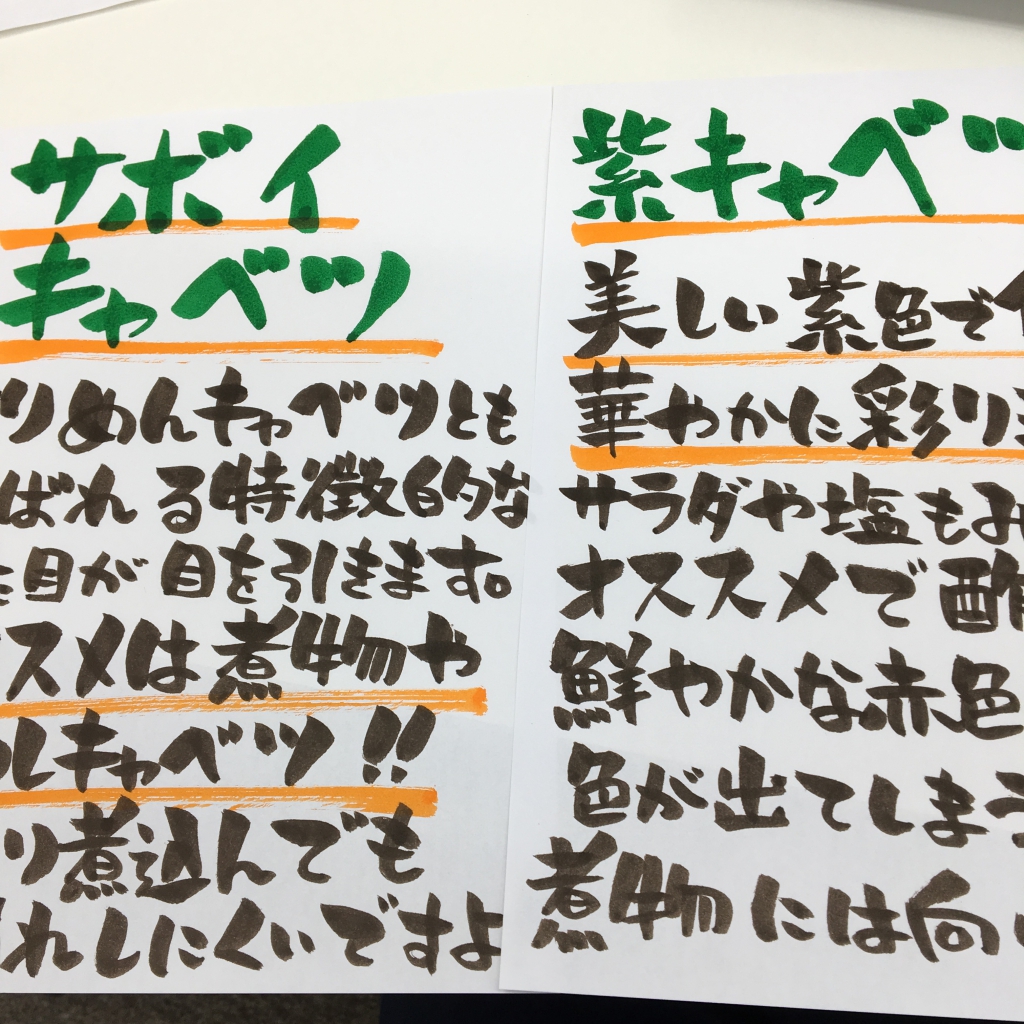 サボイ
キャベツ
りめんキャベツとも
ばれる特徴的な
た目が目を引きます。
スメは煮物や
ルキャベツ!!
り煮込んでも
れしにくいですよ
紫キャベツ
美しい紫色で
華やかに彩り
サラダや塩もみ
オススメで酢
鮮やかな赤色
色が出てしまう
煮物には向